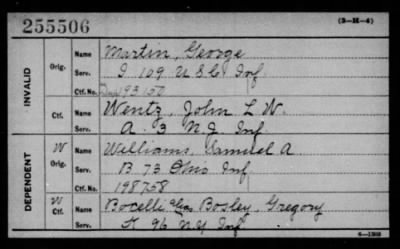 255506
(3-H-4)
INVALID
Orig.
Name Martin, George
Serv. I 109 U S C Inf.
Ctf. No. 193150
Ctf.
Name Wentz, John L W.
Serv. A. 3 N J Inf
DEPENDENT
W
Orig.
Name Williams, Samuel A
Serv. B 73 Ohio Inf.
Ctf. No. 198758
W
Ctf.
Name Bocelli alias Bosley, Gregory
Serv. K 96 N.Y Inf